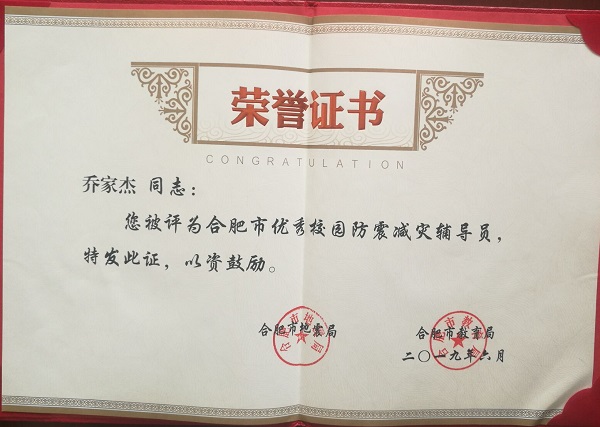 荣誉证书
CONGRATULATION
乔家杰 同志：
您被评为合肥市优秀校园防震减灾辅导员，
特发此证，以资鼓励。
合肥市地震局 合肥市教育局
二〇一九年六月